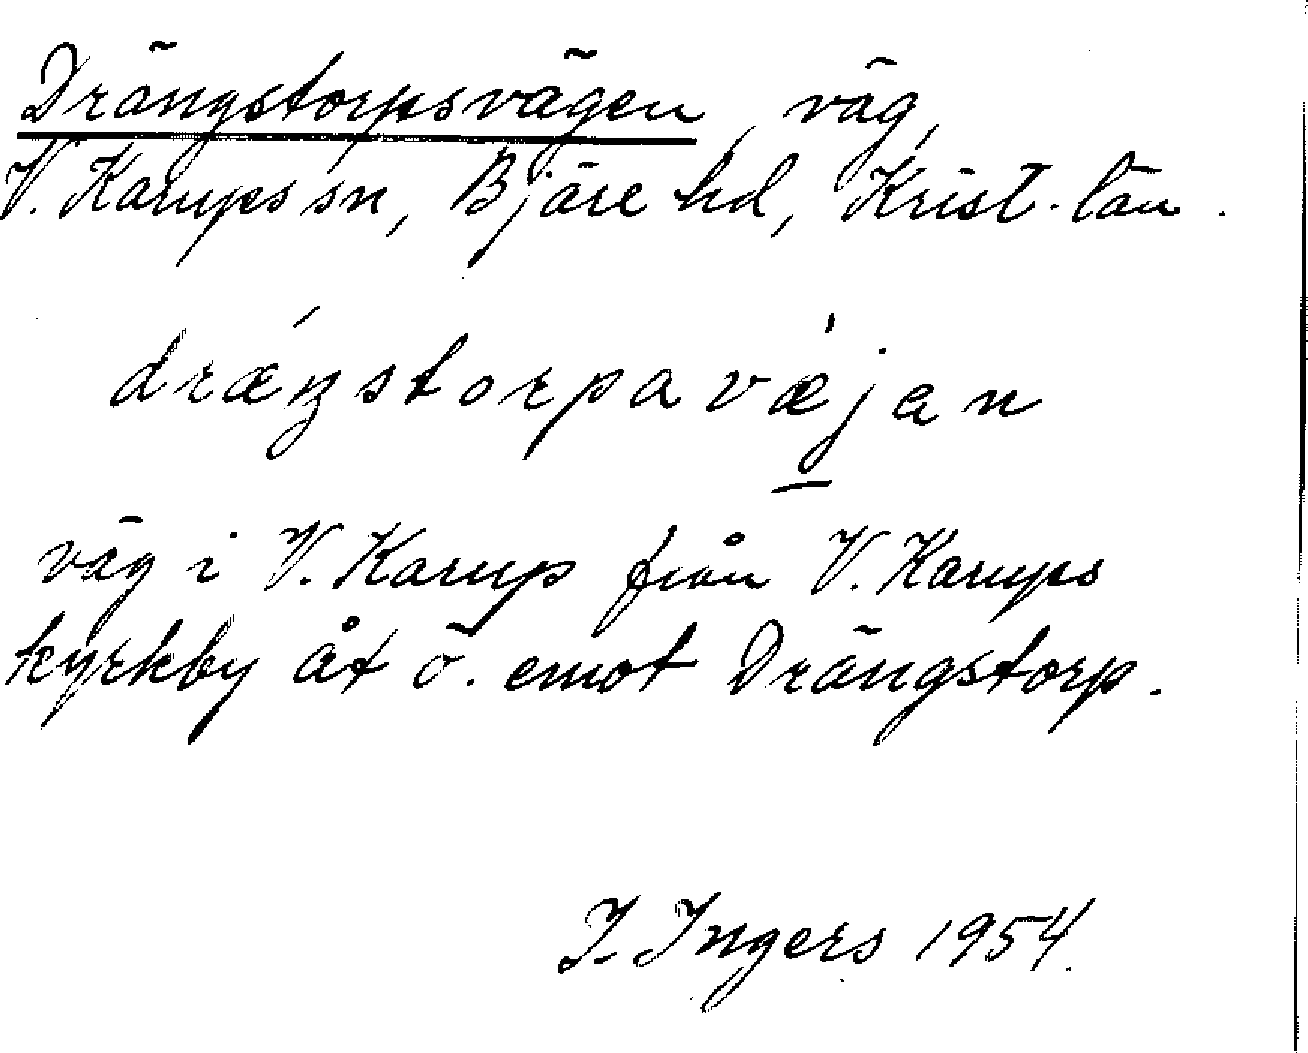 Drängstorpsvägen, väg,
V. Karups sn, Bjäre hd, Krist. län.
dræŋstorpavæjan
väg i V. Karup från V. Karups
kyrkby åt ö. emot Drängstorp.
I. Ingers 1954.